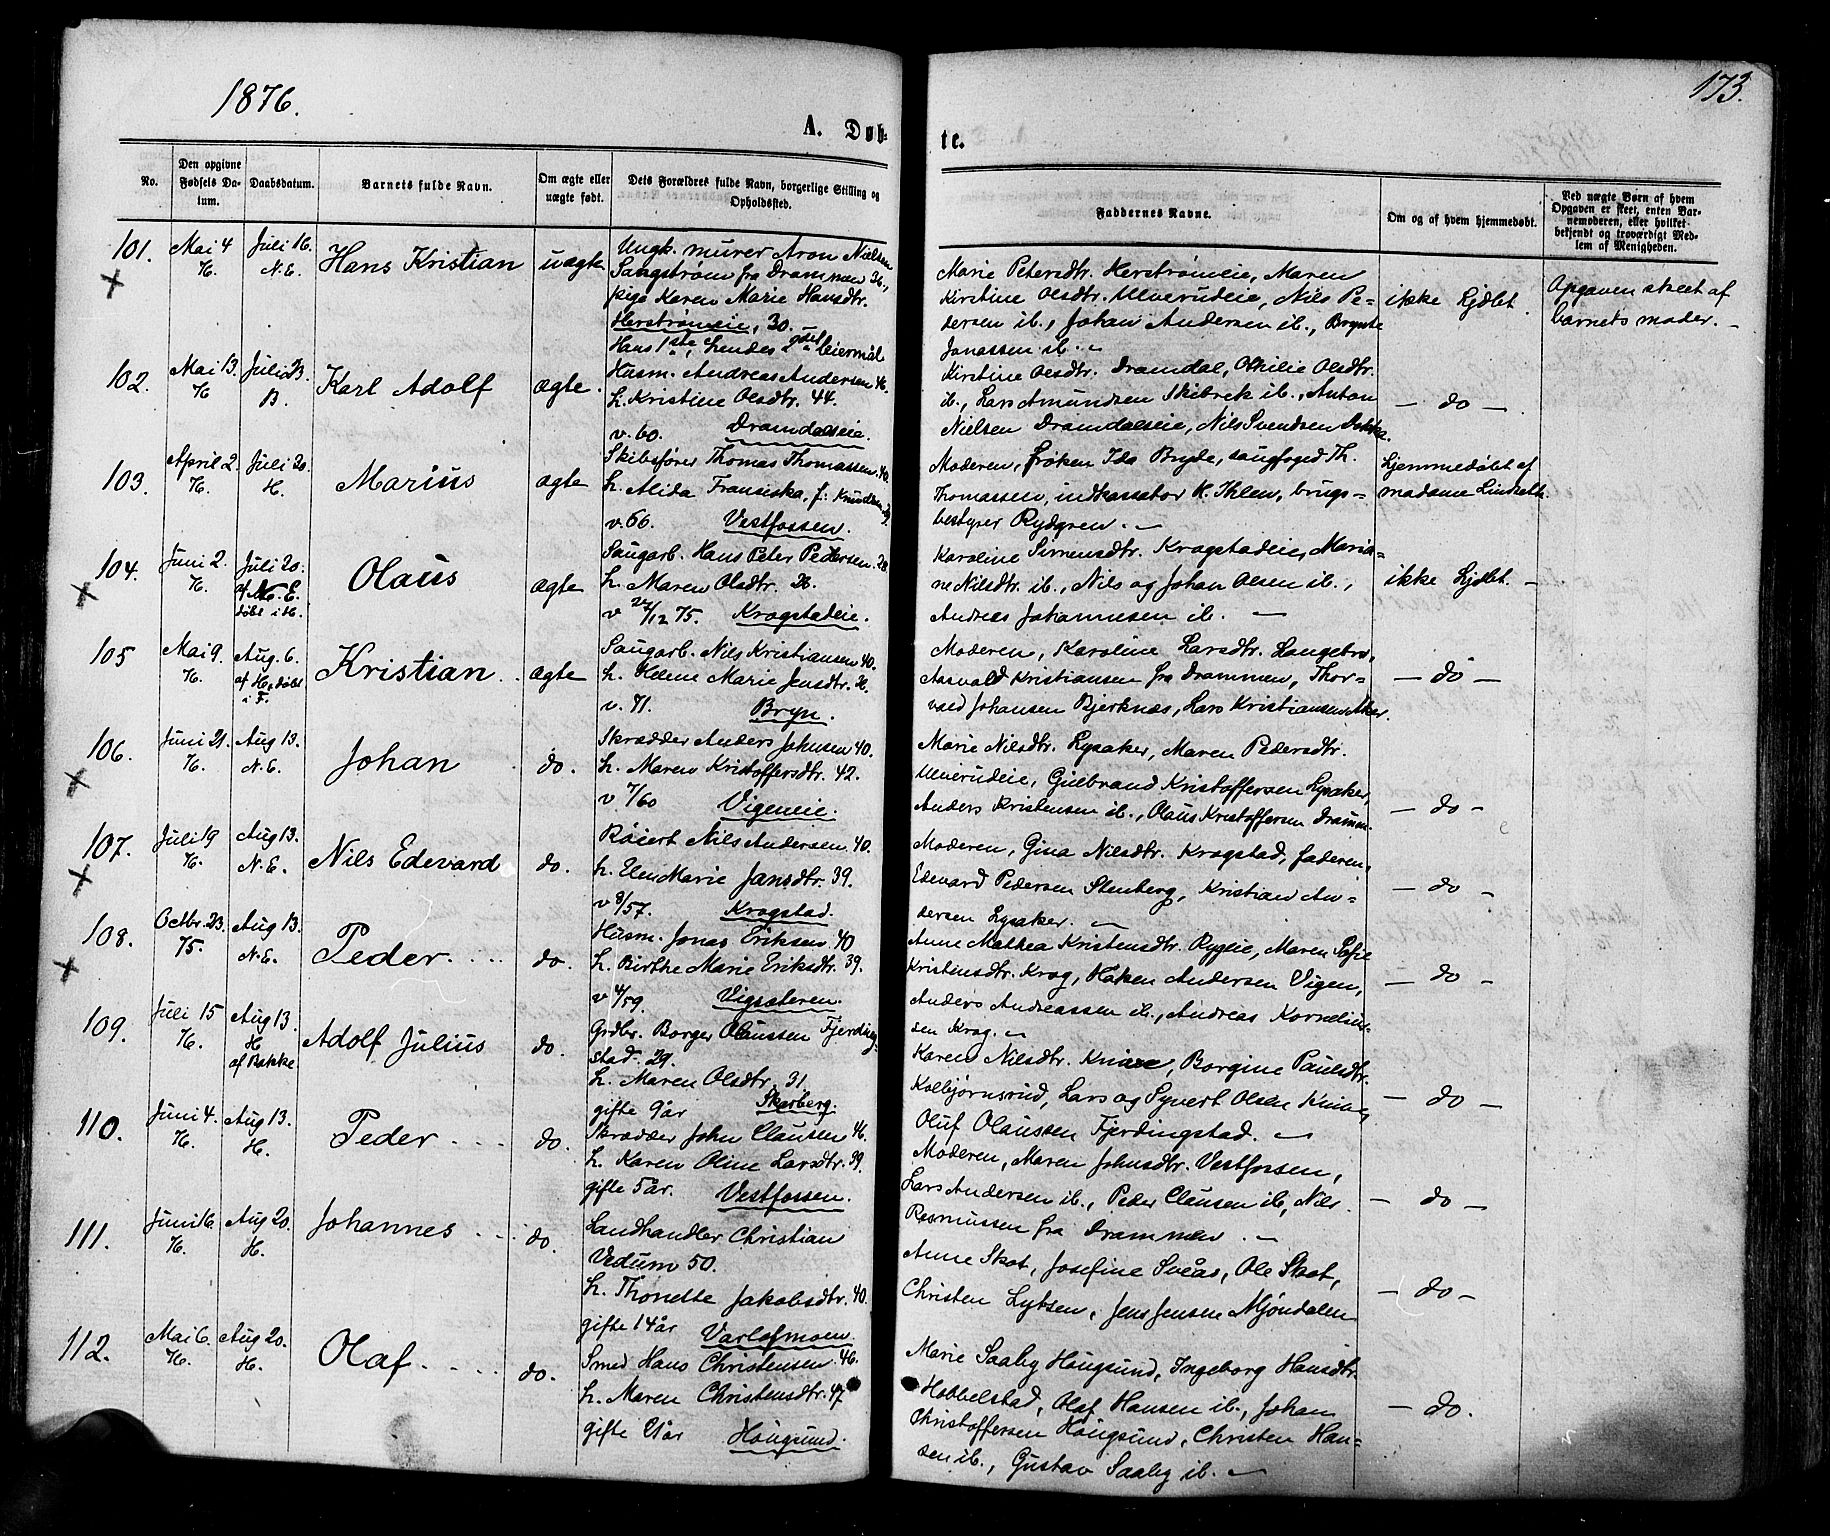 1876.
173.
A. Døb-
te.
No.
Den opgivne Fødsels Da-
tum.
Daabsdatum.
Barnets fulde Navn.
Om ægte eller uægte født.
Dets Forældres fulde Navn, borgerlige Stilling og
Opholdssted.
Faddernes Navne.
Om og af hvem hjemmedøbt.
Ved uægte Børn af hvem
Opgaven er skeet, enten Bar-
nemoderen, eller hvilket
bekjendt og troværdigt Med-
lem af Menigheden.
101. Mai 4 H. Juli 16. N.E. Hans Kristian uægte
Ungk. murer Aron Nielsen
Sangstrøm fra Drammen 36,
pige Karen Marie Hansdtr.
Herstrømeie, 30.
Hans 1ste, hendes 2det leiermål
Marie Petersdtr. Herstrømeie, Maren
Kirstine Olsdtr. Ulverudeie, Nils Pe-
dersen ib., Johan Andersen ib., Brynte
Jonassen ib. –
ikke hjdbt.
Opgaven skeet af
barnets moder. –
102. Mai 13. H Juli 23. B. Karl Adolf ægte.
Husm. Andreas Andersen 46.
h. Kristine Olsdtr. 44.
v. 60. Dramdalseie.
Kirstine Olsdtr. Dramdal, Othilie Olsdtr.
ib., Lars Amundsen Skibrek ib., Anton
Nielsen Dramdalseie, Nils Svendsen Dokka.
– do –
103. April 2. H. Juli 20. H. Marius ægte
Skibsfører Thomas Thomassen 40.
h. Alida Fransiska, f. Knudsen 29.
v. 66. Vestfossen.
Moderen, frøken Ida Bryde, saugfoged Th.
Thomassen, indkassator K. Ihlen, brugs-
bestyrer Rydgren. –
hjemmedøbt af
madame Lindseth.
104. Juni 2. H. Juli 20. af N.E. døbt i H. Olaus ægte
Saugarb. Hans Peter Pedersen 28
h. Maren Olsdtr. 26.
v 26/12 75. Krogstadeie.
Karoline Simensdtr. Krogstadeie, Maria-
ne Nilsdtr. ib., Nils og Johan Olsen ib.,
Andreas Johannesen ib. –
ikke hjdbt. –
105 Mai 9. H. Aug. 6. af H. døbt i F. Kristian ægte
Saugarb. Nils Kristiansen 40.
h. Helene Marie Jensdtr. 36.
v. 71. Bryn.
Moderen, Karoline Larsdtr. Langebro,
Aasvald Kristiansen fra Drammen, Thor-
vald Johansen Bjerknæs, Lars Kristiansen Aker.
– do –
106. Juni 21. H. Aug 13. N.E. Johan do.
Skrædder Anders Johnsen 40.
h. Maren Kristoffersdtr. 42.
v 7/60 Vigeneie.
Marie Nilsdtr. Lysaker, Maren Pedersdtr.
Ulverudeie, Gulbrand Kristoffersen Lysaker,
Anders Kristensen ib., Olaus Kristoffersen Dramm.
– do –
107. Juli 19 H. Aug 13. N.E. Nils Edevard do.
Røiert Nils Andersen 40.
h. Elen Marie Jansdtr. 39.
v 8/57. Krogstad.
Moderen, Gina Nilsdtr. Krogstad, faderen,
Edevard Pedersen Stenberg, Kristian An-
dersen Lysaker. –
– do –
108. Octbr. 23. 75. Aug 13. N.E. Peder. do.
Husm. Jonas Eriksen 40
h. Birthe Marie Eriksdtr. 39.
v 4/59. Vigsæteren.
Anne Mathea Kristensdtr. Rygeie, Maren Sofie
Kristinsdtr. Krog, Haken Andersen Vigen,
Anders Andreassen ib., Andreas Kornelius-
sen Krog. –
– do –
109. Juli 15 H. Aug 13. H af Bakke Adolf Julius do.
Grdbr. Borger Olaussen Fjerding-
stad. 29.
h. Maren Olsdtr. 31
gifte 9 år Skarberg.
Karen Nilsdtr. Knive, Borgine Paulsdtr.
Kolbjørnsrud, Lars og Syvert Olsen Knive,
Oluf Olaussen Fjerdingstad. –
– do –
110. Juni 4. H. Aug 13. H. Peder do
Skrædder John Clausen 46.
h. Karen Oline Larsdtr. 39.
gifte 5 år. Vestfossen.
Moderen, Maren Johnsdtr. Vestfossen,
Lars Andersen ib., Peder Clausen ib., Nils
Rasmussen fra Drammen. –
– do –
111. Juni 16. H. Aug 20. H. Johannes do.
Landhandler Christian
Vedum 50.
h. Thonette Jakobsdtr. 40.
gifte 14 år Varlofmoen.
Anne Skot, Josefine Sveås, Ole Skot,
Christen Lybsen, Jens Jensen Mjøndalen
– do –
112. Mai 6. H. Aug 20. H. Olaf. do.
Smed Hans Christensen. 46.
h. Maren Christensdtr. 47
gifte 21 år Hougsund.
Marie Saaby Hougsund, Ingeborg Hansdtr.
Hobbelstad, Olaf Hansen ib., Johan
Christoffersen Hougsund, Christen Han-
sen ib., Gustav Saaby ib. –
– do.